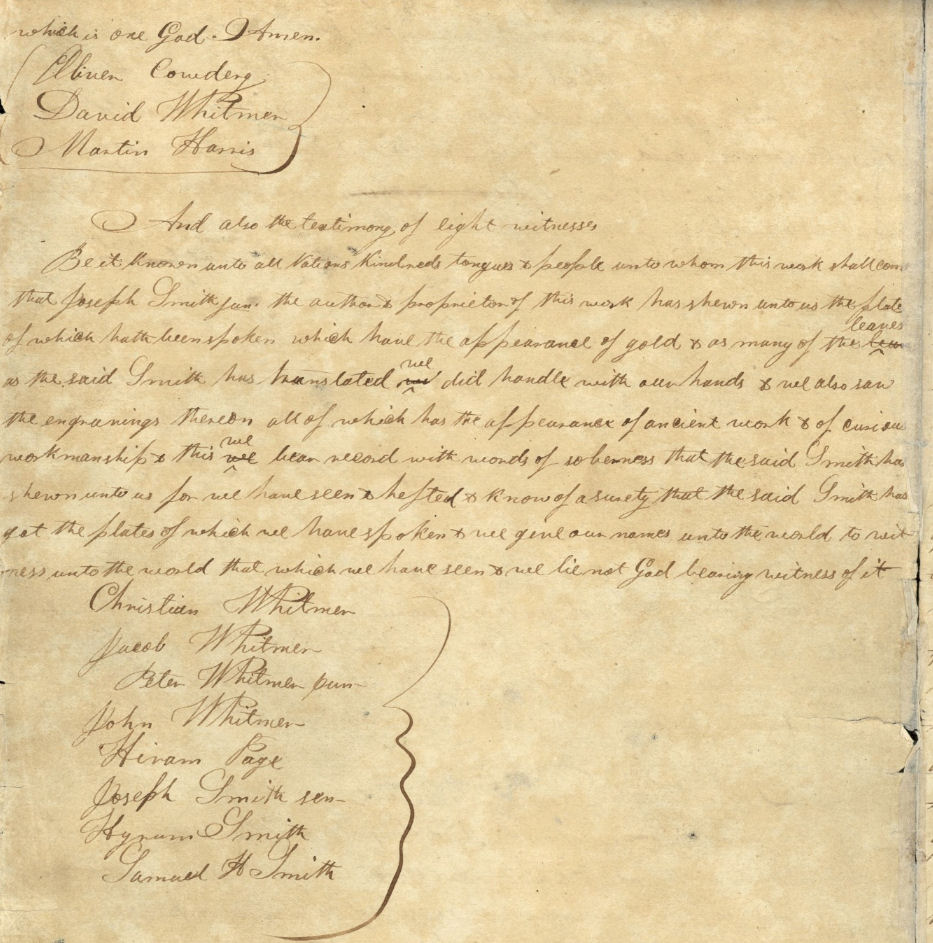 which is one God. Amen.
Oliver Cowdery
David Whitmer
Martin Harris
And also the testimony of eight witnesses
Be it known unto all Nations Kindreds tongues & people unto whom this work shall com
that Joseph Smith Jun. the author & proprietor of this work has shewn unto us the plate
leaves
of which hath been spoken which have the appearance of gold & as many of the
we
as the said Smith has translated did handle with our hands & we also saw
the engravings thereon all of which has the appearance of ancient work & of curiou
we
workmanship & this we bear record with words of soberness that the said Smith has
shewn unto us for we have seen & hefted & know of a surety that the said Smith has
got the plates of which we have spoken & we give our names unto the world to wit
ness unto the world that which we have seen & we lie not God bearing witness of it
Christian Whitmer
Jacob Whitmer
Peter Whitmer jun
John Whitmer
Hiram Page
Joseph Smith sen
Hyrum Smith
Samuel H Smith